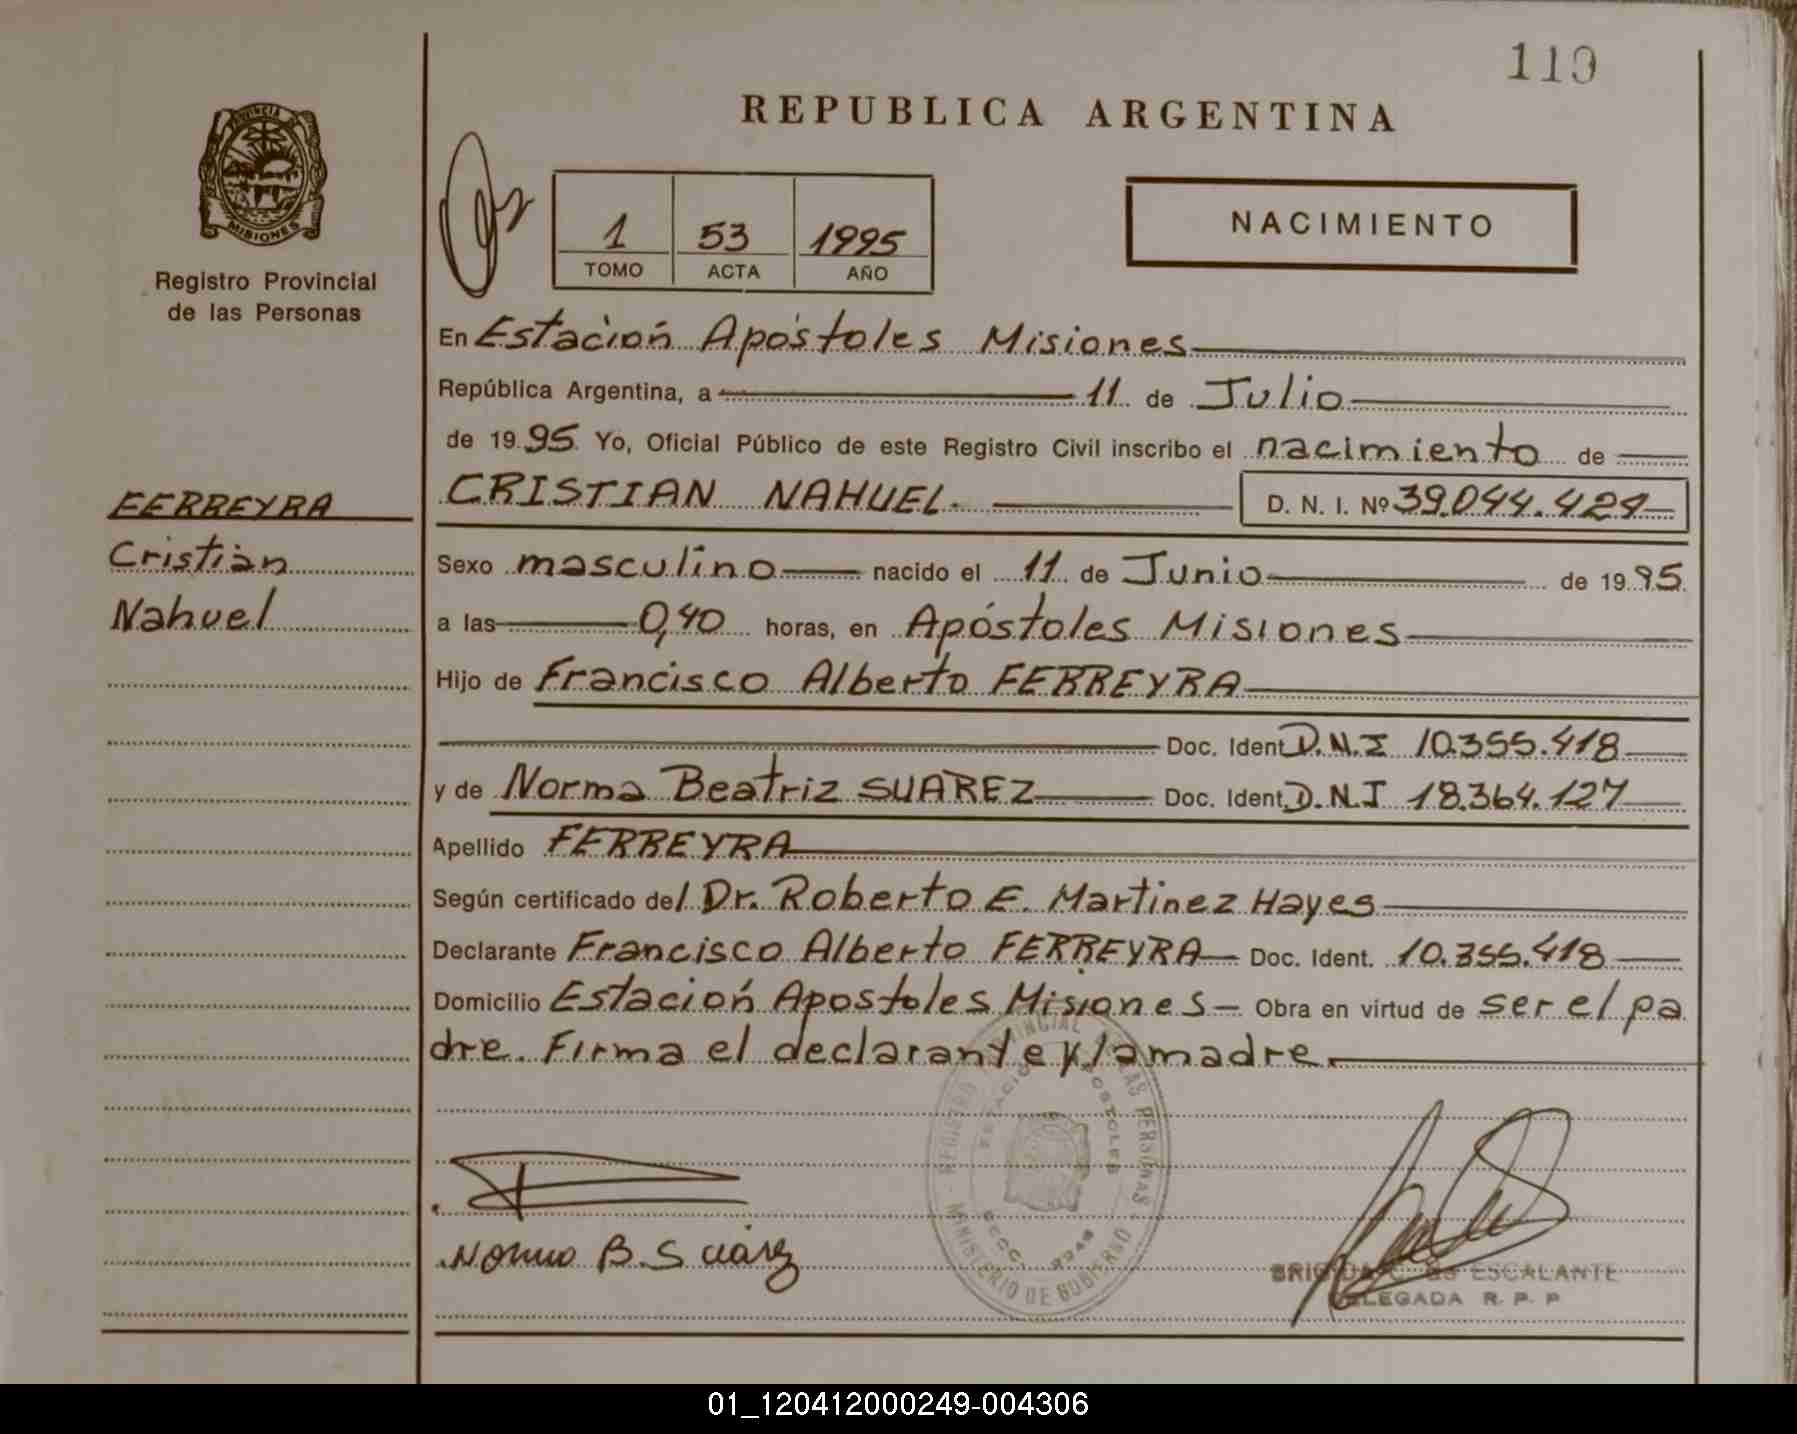 110
REPUBLICA ARGENTINA
PROVINCIA
MISIONES
Registro Provincial
de las Personas
1 53 1995
TOMO ACTA AÑO
NACIMIENTO
En Estación Apóstoles Misiones
República Argentina, a 11 de Julio
de 1995. Yo, Oficial Público de este Registro Civil inscribo el nacimiento de
FERREYRA
Cristian
Nahuel
CRISTIAN NAHUEL. D. N. I. Nº 39.044.421
Sexo masculino nacido el 11 de Junio de 1995.
a las 0,40 horas, en Apóstoles Misiones
Hijo de Francisco Alberto FERREYRA
Doc. Ident. D.N.I 10.355.418
y de Norma Beatriz SUAREZ Doc. Ident. D.N.I 18.364.127
Apellido FERREYRA
Según certificado del Dr. Roberto E. Martinez Hayes
Declarante Francisco Alberto FERREYRA Doc. Ident. 10.355.418
Domicilio Estación Apostoles Misiones Obra en virtud de ser el pa
dre. Firma el declarante y la madre.
REGISTRO PROVINCIAL DE LAS PERSONAS
ESTACION APOSTOLES
MINISTERIO DE GOBIERNO
Norma B. Suárez
ESCALANTE
DELEGADA R. P. P
01_120412000249-004306